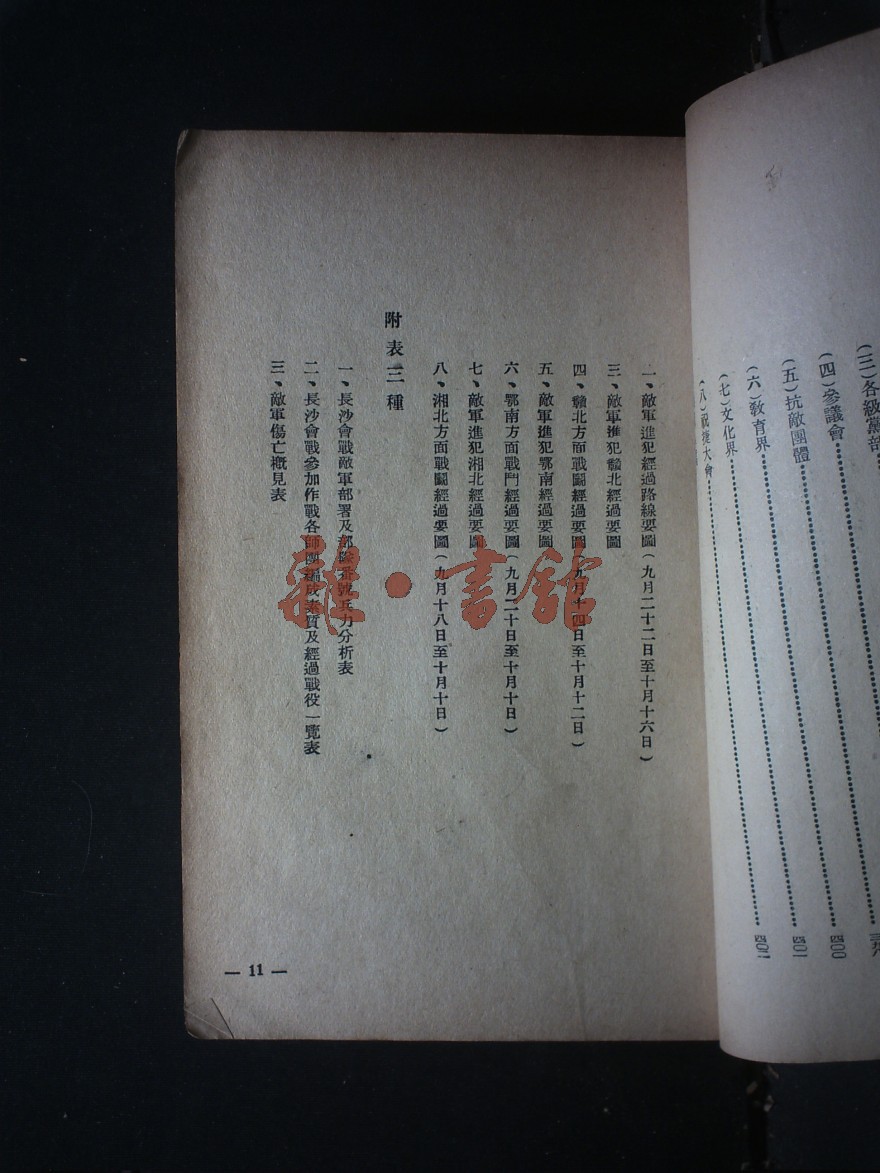 (三)各級黨部
(四)參議會 四〇〇
(五)抗敵團體 四〇一
(六)敎育界 四〇二
(七)文化界
(八)祝捷大會
一、敵軍進犯經過路線要圖(九月二十二日至十月十六日)
三、敵軍推犯贛北經過要圖
四、贛北方面戰鬭經過要圖(九月十四日至十月十二日)
五、敵軍進犯鄂南經過要圖
六、鄂南方面戰鬥經過要圖(九月二十日至十月十日)
七、敵軍進犯湘北經過要圖
八、湘北方面戰鬭經過要圖(九月十八日至十月十日)
附表三種
一、長沙會戰敵軍部署及部隊番號兵力分析表
二、長沙會戰參加作戰各師團編成素質及經過戰役一覽表
三、敵軍傷亡概見表
— 11 —
龍·書館